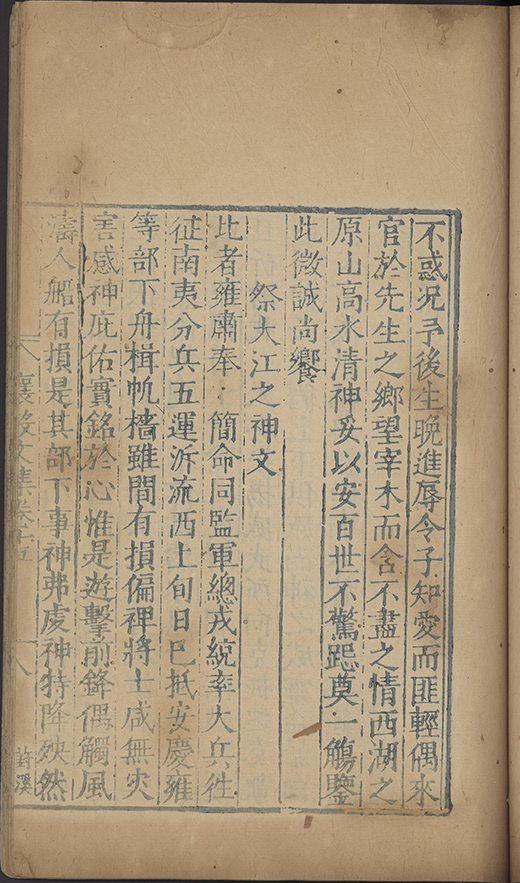 不惑况予後生晚進辱令子知愛而匪輕偶來
官於先生之鄉望宰木而含不盡之情西湖之
原山高水清神妥以安百世不驚跽奠一觴鑒
此微誠尚饗
祭大江之神文
比者雍肅奉簡命同監軍總戎統率大兵徃
征南夷分兵五運泝流西上旬日已抵安慶雍
等部下舟楫帆檣雖間有損偏裨將士咸無灾
害感神庇佑實銘於心惟是遊擊前鋒偶觸風
濤人船有損是其部下事神弗虔神特降殃然
襄毅文集卷十五
八
蔚溪